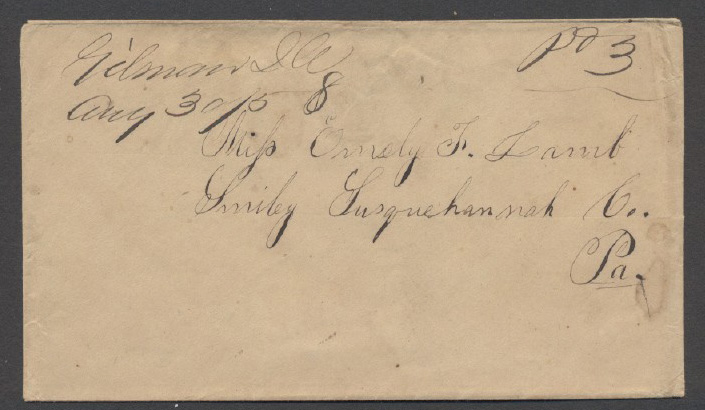 Gilmour Ill
pd 3
Aug 30/58
Miss Emely F. Lamb
Smiley Susquehannah Co.
Pa.